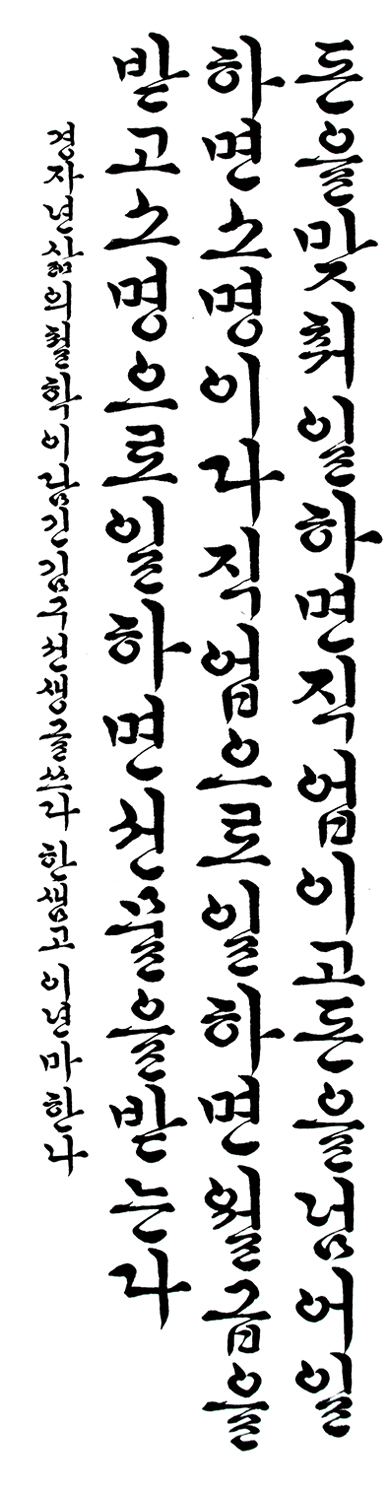 돈을맞춰일하면직업이고돈을넘어일
하면소명이다직업으로일하면월급을
받고소명으로일하면선물을받는다
경자년삶의철학이담긴김구선생글쓰다 한생고 이년 마한나